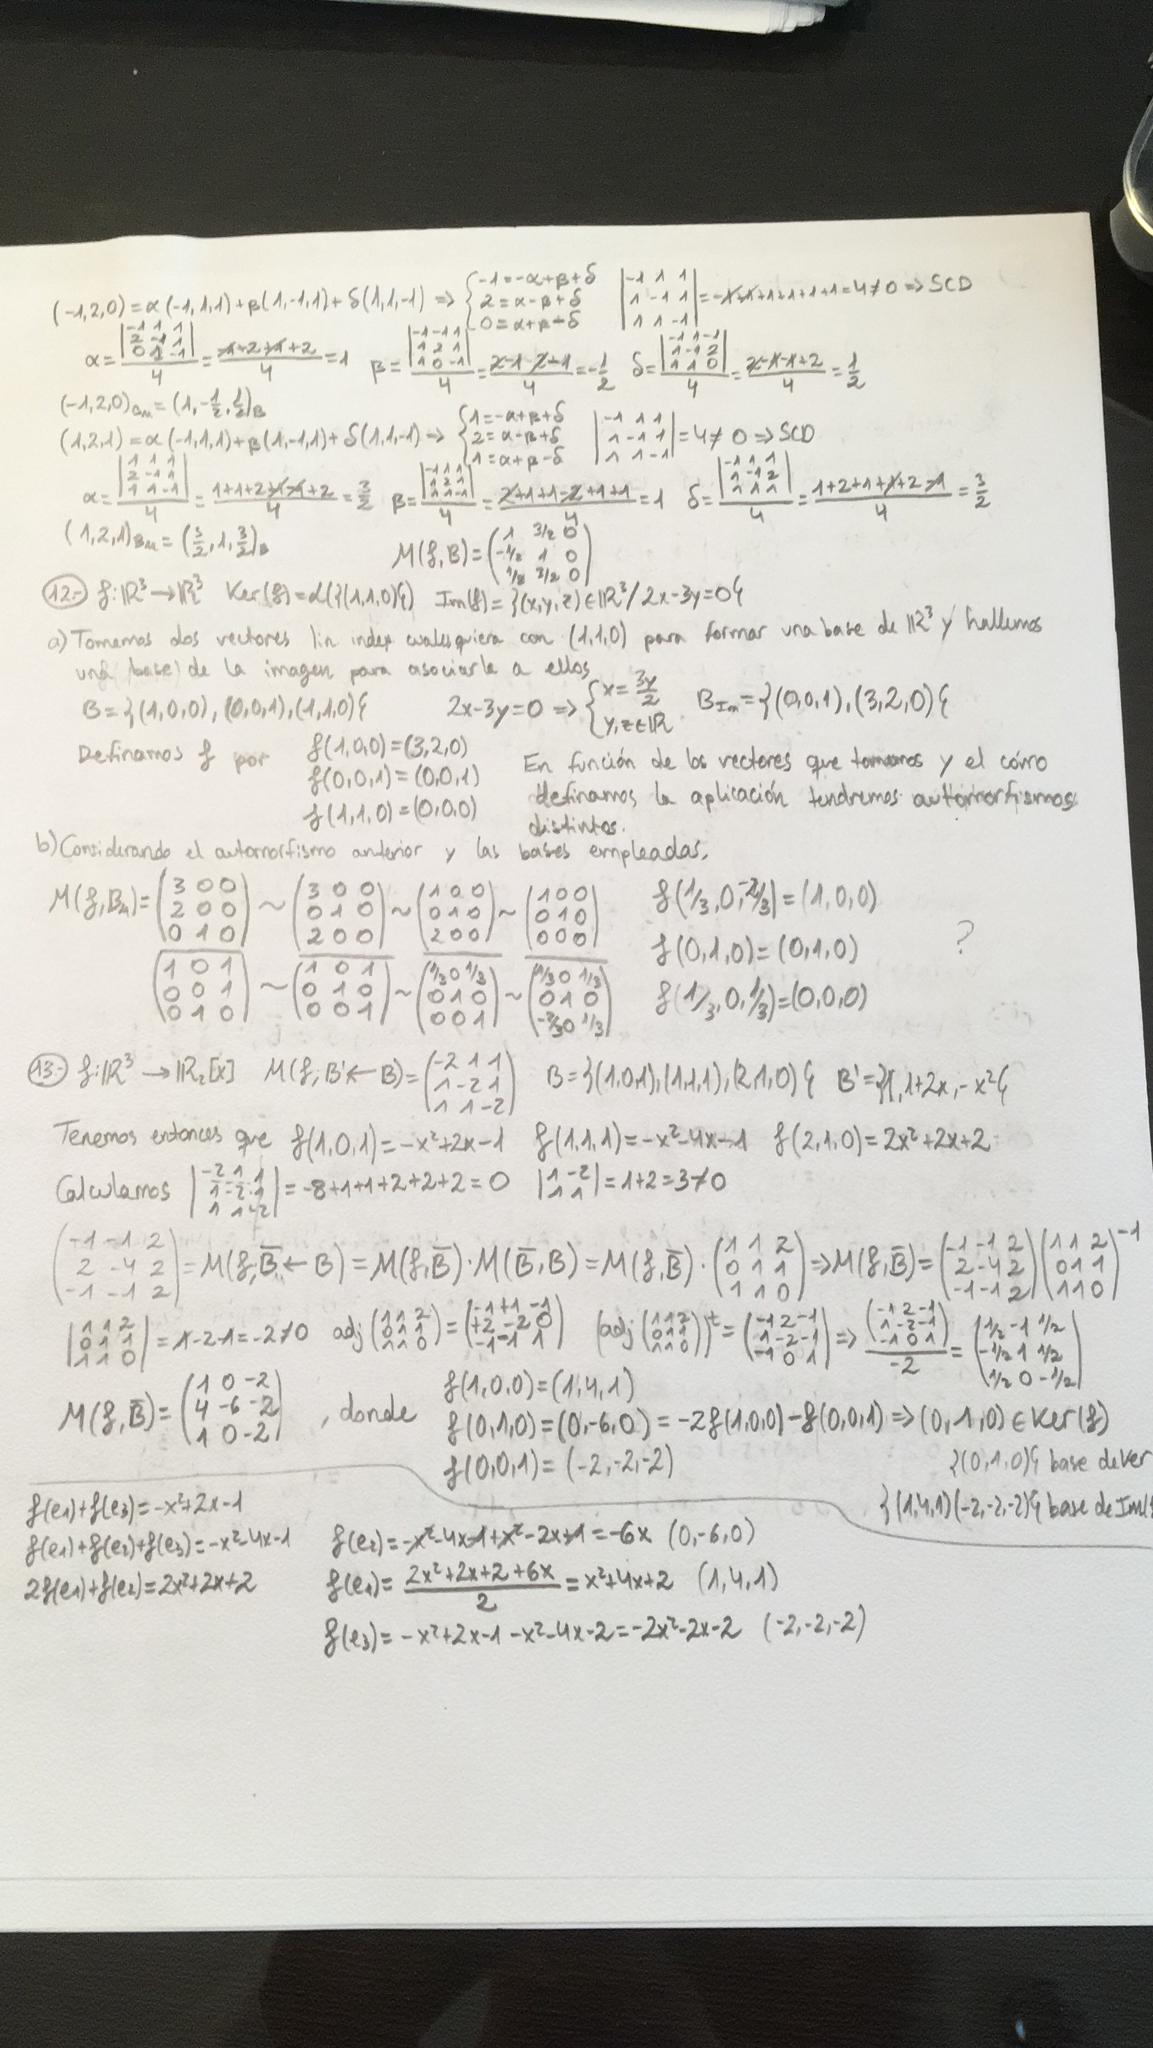 (-1,2,0)=α(-1,1,1)+β(1,-1,1)+δ(1,1,-1) => {-1=-α+β+δ; 2=α-β+δ; 0=α+β-δ |-1 1 1; 1 -1 1; 1 1 -1| = -1+1+1+1+1+1=4≠0 => SCD
α= |-1 1 1; 2 -1 1; 0 1 -1| / 4 = (-1+2+1+2)/4 =1 β= |-1 -1 1; 1 2 1; 1 0 -1| / 4 = (2-1-2-1)/4 = -1/2 δ= |-1 1 -1; 1 -1 2; 1 1 0| / 4 = (2-1-1+2)/4 = 1/2
(-1,2,0)Bu=(1,-1/2,1/2)B
(1,2,1)=α(-1,1,1)+β(1,-1,1)+δ(1,1,-1) => {1=-α+β+δ; 2=α-β+δ; 1=α+β-δ |-1 1 1; 1 -1 1; 1 1 -1| =4≠0 => SCD
α= |1 1 1; 2 -1 1; 1 1 -1| / 4 = (1+1+2+1-1+2)/4 = 3/2 β= |-1 1 1; 1 2 1; 1 1 -1| / 4 = (2+1+1-2+1+1)/4 =1 δ= |-1 1 1; 1 -1 2; 1 1 1| / 4 = (1+2+1+1+2-1)/4 = 3/2
(1,2,1)Bu=(3/2,1,3/2)B M(f,B)=(1 3/2 0; -1/2 1 0; 1/2 3/2 0)
12.- f:ℝ³→ℝ³ Ker(f)=L({(1,1,0)}) Im(f)={(x,y,z)∈ℝ³/2x-3y=0}
a) Tomemos dos vectores lin indep cualesquiera con (1,1,0) para formar una base de ℝ³ y hallemos
una base de la imagen para asociarle a ellos
B={(1,0,0),(0,0,1),(1,1,0)} 2x-3y=0 => {x=3y/2; y,z∈ℝ B Im={(0,0,1),(3,2,0)}
Definamos f por f(1,0,0)=(3,2,0)
f(0,0,1)=(0,0,1)
f(1,1,0)=(0,0,0)
En función de los vectores que tomemos y el cómo
definamos la aplicación tendremos automorfismos
distintos.
b) Considerando el automorfismo anterior y las bases empleadas,
M(f,Bu)=(3 0 0; 2 0 0; 0 1 0) ~ (3 0 0; 0 1 0; 2 0 0) ~ (1 0 0; 0 1 0; 2 0 0) ~ (1 0 0; 0 1 0; 0 0 0) f(1/3,0,-2/3)=(1,0,0)
f(0,1,0)=(0,1,0) ?
(1 0 1; 0 0 1; 0 1 0) ~ (1 0 1; 0 1 0; 0 0 1) ~ (1/3 0 1/3; 0 1 0; 0 0 1) ~ (1/3 0 1/3; 0 1 0; -2/3 0 1/3) f(1/3,0,1/3)=(0,0,0)
13.- f:ℝ³→ℝ₂[x] M(f,B'←B)=(-2 1 1; 1 -2 1; 1 1 -2) B={(1,0,1),(1,1,1),(2,1,0)} B'={1,1+2x,-x²}
Tenemos entonces que f(1,0,1)=-x²+2x-1 f(1,1,1)=-x²-4x-1 f(2,1,0)=2x²+2x+2
Calculamos |-2 1 1; 1 -2 1; 1 1 -2| =-8+1+1+2+2+2=0 |1 -2; 1 1| =1+2=3≠0
(-1 -1 2; 2 -4 2; -1 -1 2) = M(f,B̄←B) = M(f,B̄)·M(B̄,B) = M(f,B̄)·(1 1 2; 0 1 1; 1 1 0) => M(f,B̄)=(-1 -1 2; 2 -4 2; -1 -1 2)(1 1 2; 0 1 1; 1 1 0)⁻¹
|1 1 2; 0 1 1; 1 1 0| =1-2-1=-2≠0 adj(1 1 2; 0 1 1; 1 1 0)=(-1 +1 -1; +2 -2 0; -1 -1 1) (adj(1 1 2; 0 1 1; 1 1 0))ᵗ=(-1 2 -1; 1 -2 -1; -1 0 1) => (-1 2 -1; 1 -2 -1; -1 0 1)/-2 = (1/2 -1 1/2; -1/2 1 1/2; 1/2 0 -1/2)
M(f,B̄)=(1 0 -2; 4 -6 -2; 1 0 -2), donde f(1,0,0)=(1,4,1)
f(0,1,0)=(0,-6,0)=-2f(1,0,0)-f(0,0,1) => (0,1,0)∈Ker(f)
f(0,0,1)=(-2,-2,-2) {(0,1,0)} base de ker
{(1,4,1)(-2,-2,-2)} base de Im(f
f(e₁)+f(e₃)=-x²+2x-1
f(e₁)+f(e₂)+f(e₃)=-x²-4x-1 f(e₂)=-x²-4x-1+x²-2x+1=-6x (0,-6,0)
2f(e₁)+f(e₂)=2x²+2x+2 f(e₁)=(2x²+2x+2+6x)/2=x²+4x+2 (1,4,1)
f(e₃)=-x²+2x-1-x²-4x-2=-2x²-2x-2 (-2,-2,-2)